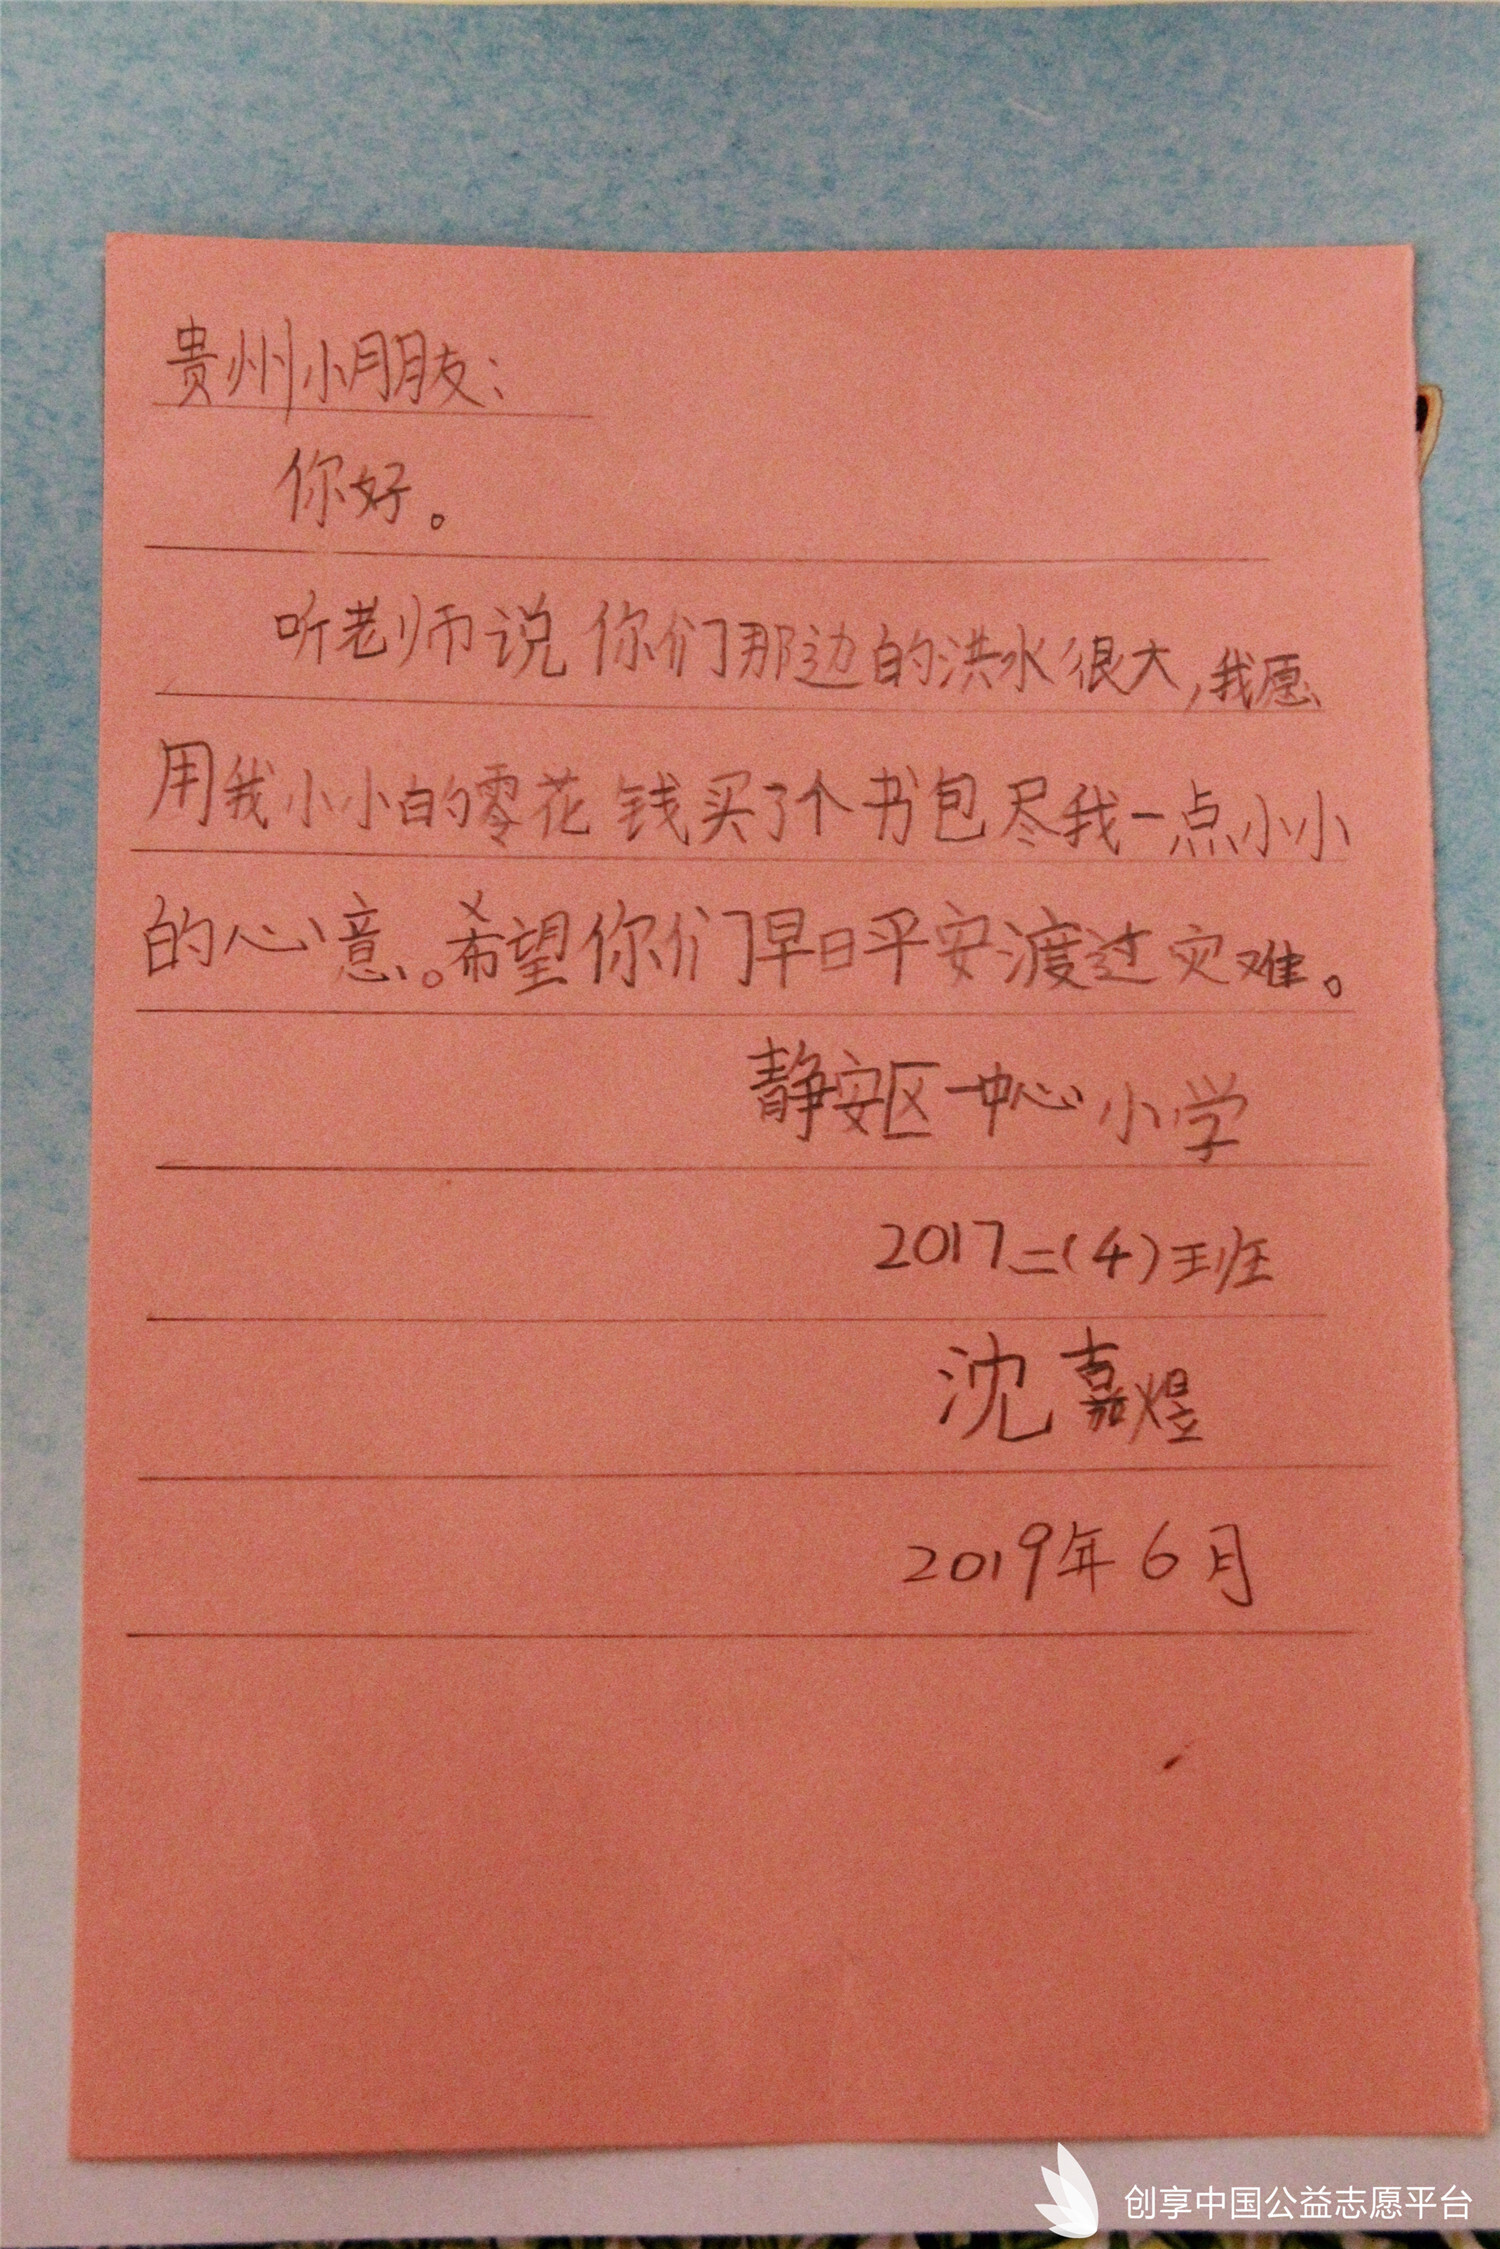 贵州小朋友：
你好。
听老师说你们那边的洪水很大,我愿
用我小小的零花钱买了个书包尽我一点小小
的心意。希望你们早日平安渡过灾难。
静安区一中心小学
2017二(4)班
沈嘉煜
2019年6月
创享中国公益志愿平台